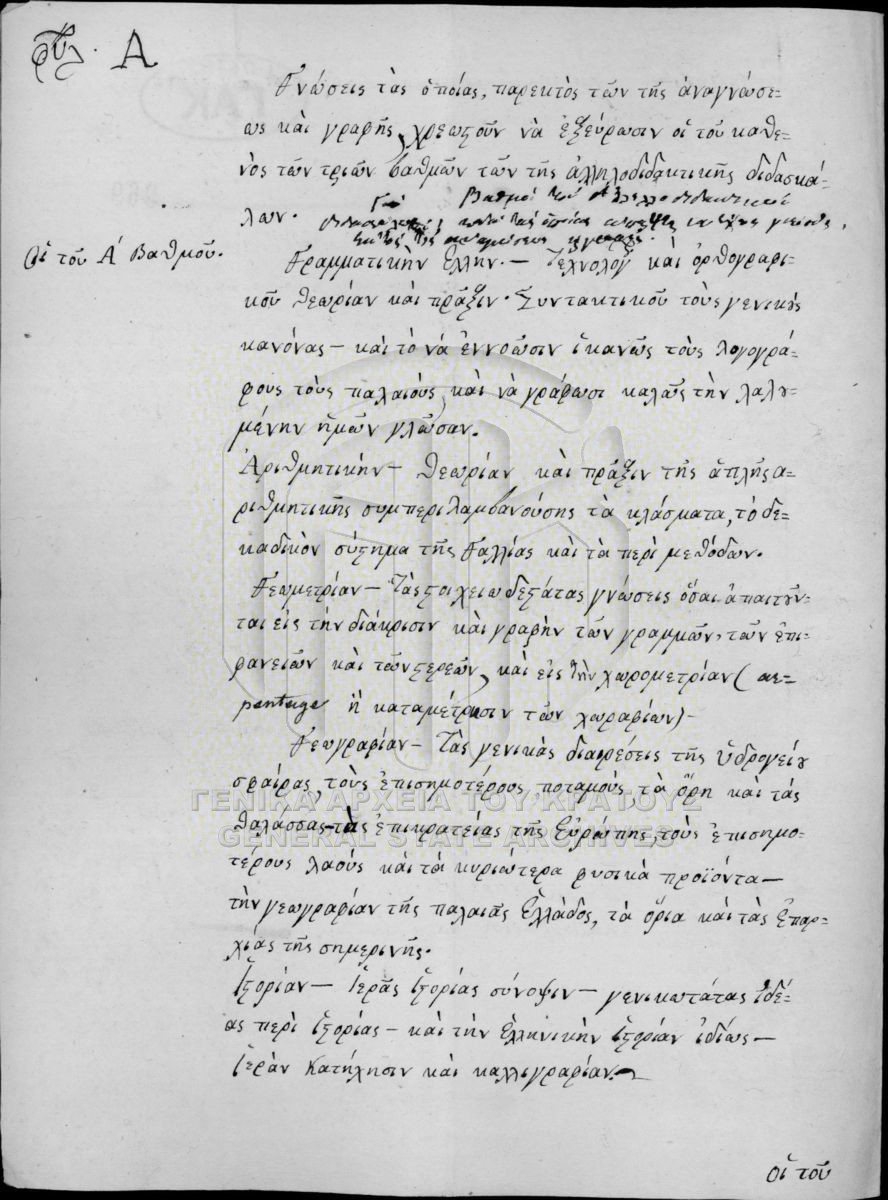 Α
Γνώσεις τὰς ὁποίας, παρεκτὸς τῶν τῆς ἀναγνώσε=
ως καὶ γραφῆς, χρεωστοῦν νὰ ἐξεύρωσιν οἱ τοῦ καθε=
νὸς τῶν τριῶν βαθμῶν τῶν τῆς ἀλληλοδιδακτικῆς διδασκά=
λων.
βαθμοί τοῦ ἀλληλοδιδακτικοῦ
ὁποίας
ἐκτὸς τῆς ἀναγνώσεως
Οἱ τοῦ Α΄ Βαθμοῦ.
Γραμματικὴν Ἑλλην. — Τεχνολογ καὶ ὀρθογραφι=
κοῦ θεωρίαν καὶ πρᾶξιν. Συντακτικοῦ τοὺς γενικȣ̀ς
κανόνας — καὶ τὸ νὰ ἐννοῶσιν ἱκανῶς τοὺς λογογρά=
φους τοὺς παλαιοὺς, καὶ νὰ γράφωσι καλῶς τὴν λαλȣ=
μένην ἡμῶν γλῶσαν.
Ἀριθμητικὴν — θεωρίαν καὶ πρᾶξιν τῆς ἁπλῆς ἀ=
ριθμητικῆς συμπεριλαμβανούσης τὰ κλάσματα, τὸ δε=
καδικὸν σύστημα τῆς Γαλλίας καὶ τὰ περὶ μεθόδων.
Γεωμετρίαν — Τὰς στοιχειωδεστάτας γνώσεις ὅσαι ἀπαιτȣ͂ν=
ται εἰς τὴν διάκρισιν καὶ γραφὴν τῶν γραμμῶν, τῶν ἐπι=
φανειῶν καὶ τῶν στερεῶν, καὶ εἰς τὴν χωρομετρίαν (ar=
pentage ἢ καταμέτρησιν τῶν χωραφίων) —
Γεωγραφίαν — Τὰς γενικὰς διαιρέσεις τῆς ὑδρογείȣ
σφαίρας, τοὺς ἐπισημοτέρους ποταμοὺς τὰ ὄρη καὶ τὰς
θαλάσσας — τὰς ἐπικρατείας τῆς Εὐρώπης, τοὺς ἐπισημο=
τέρους λαοὺς καὶ τὰ κυριώτερα φυσικὰ προϊόντα —
τὴν γεωγραφίαν τῆς παλαιᾶς Ἑλλάδος, τὰ ὅρια καὶ τὰς ἐπαρ=
χίας τῆς σημερινῆς.
Ἱστορίαν — Ἱερᾶς Ἱστορίας σύνοψιν — γενικωτάτας ἰδέ=
ας περὶ Ἱστορίας — καὶ τὴν Ἑλληνικὴν Ἱστορίαν ἰδίως —
Ἱερὰν Κατήχησιν καὶ καλλιγραφίαν. —
οἱ τοῦ
ΓΕΝΙΚΑ ΑΡΧΕΙΑ ΤΟΥ ΚΡΑΤΟΥΣ
GENERAL STATE ARCHIVES